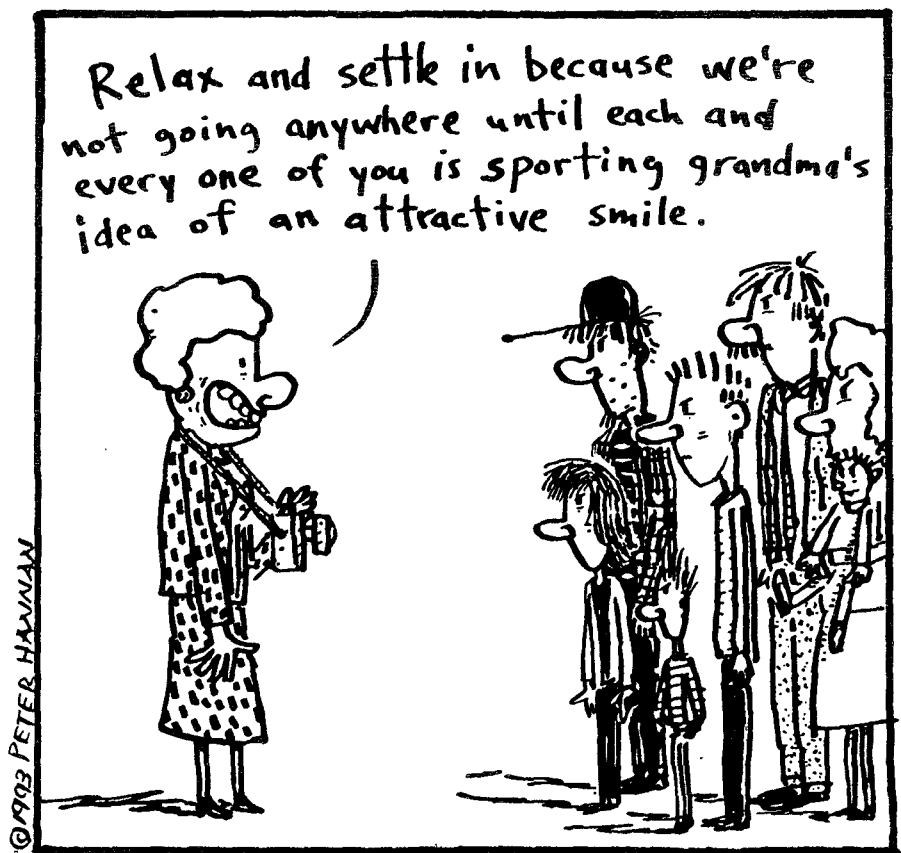 Relax and settle in because we're
not going anywhere until each and
every one of you is sporting grandma's
idea of an attractive smile.
©1993 PETER HANNAN